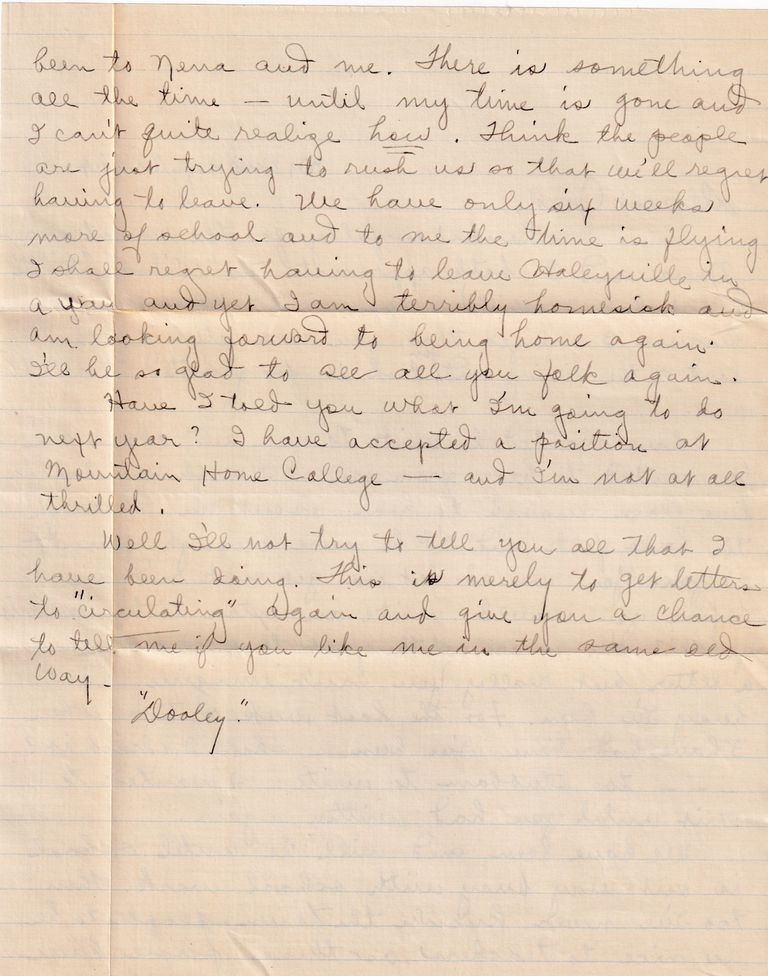 been to Nena and me. There is something
all the time — until my time is gone and
I can't quite realize how. Think the people
are just trying to rush us so that we'll regret
having to leave. We have only six weeks
more of school and to me the time is flying
I shall regret having to leave Haleyville in
a way and yet I am terribly homesick and
am looking forward to being home again.
I'll be so glad to see all you folk again.
Have I told you what I'm going to do
next year? I have accepted a position at
Mountain Home College — and I'm not at all
thrilled.
Well I'll not try to tell you all that I
have been doing. This is merely to get letters
to "circulating" again and give you a chance
to tell me if you like me in the same old
way –
"Dooley".